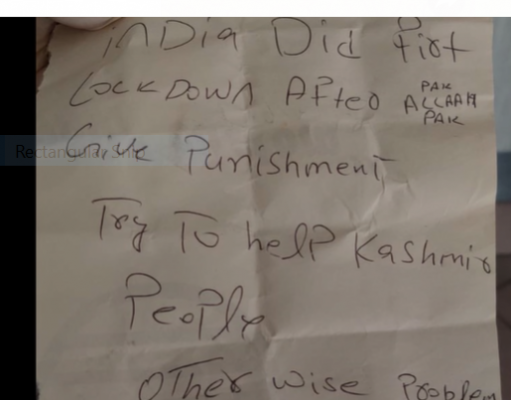 inDia Did first
LOCKDOWN AFteD PAK
ALLAAH
PAK
Give Punishment
Try To help Kashmir
People
OTher wise Problem
Rectangular Snip